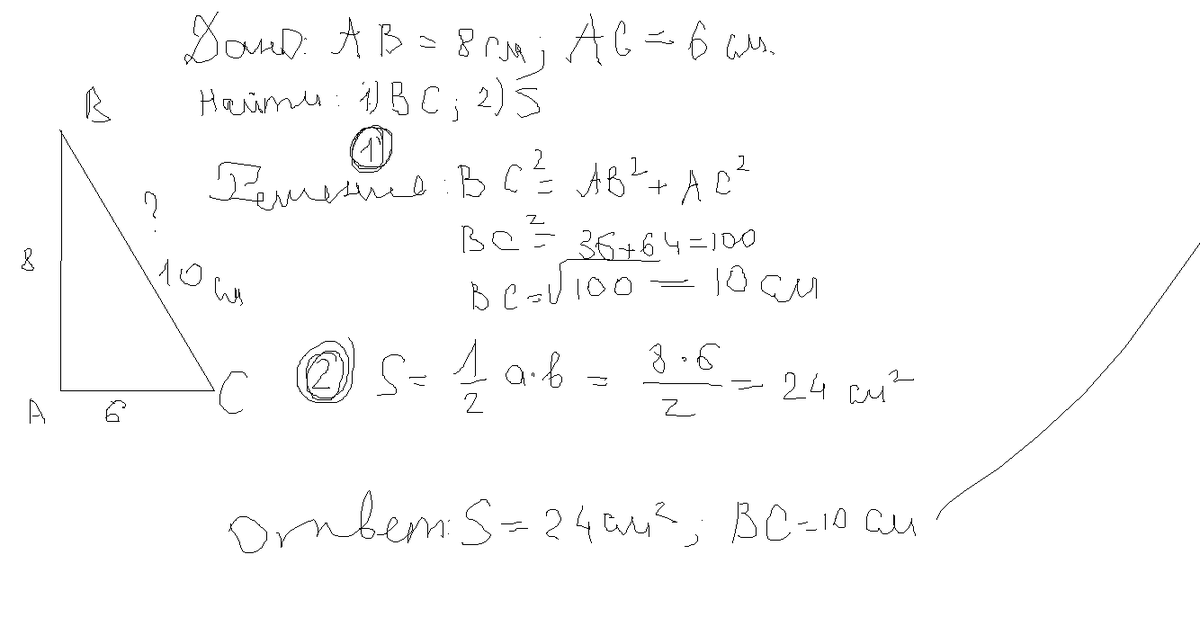 Дано: AB = 8 см; AC = 6 см.
Найти: 1) BC; 2) S
B
1
Решение: BC² = AB² + AC²
?
BC² = 36+64=100
8
10 см
BC=√100 = 10 см
2 S = 1/2 a·b = 8·6/2 = 24 см²
A 6 C
Ответ: S = 24 см²; BC=10 см